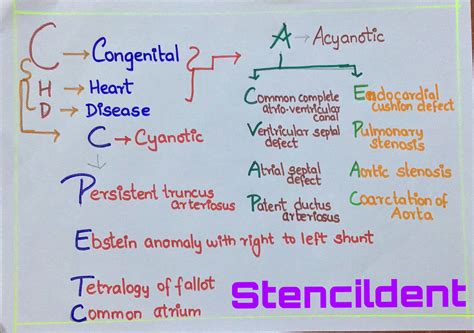 C → Congenital
A → Acyanotic
H → Heart
D → Disease
C → Cyanotic
Common complete
atrio-ventricular
canal
Ventricular septal
defect
Atrial septal
defect
Patent ductus
arteriosus
Endocardial
cushion defect
Pulmonary
stenosis
Aortic stenosis
Coarctation of
Aorta
Persistent truncus
arteriosus
Ebstein anomaly with right to left shunt
Tetralogy of fallot
Common atrium
Stencildent